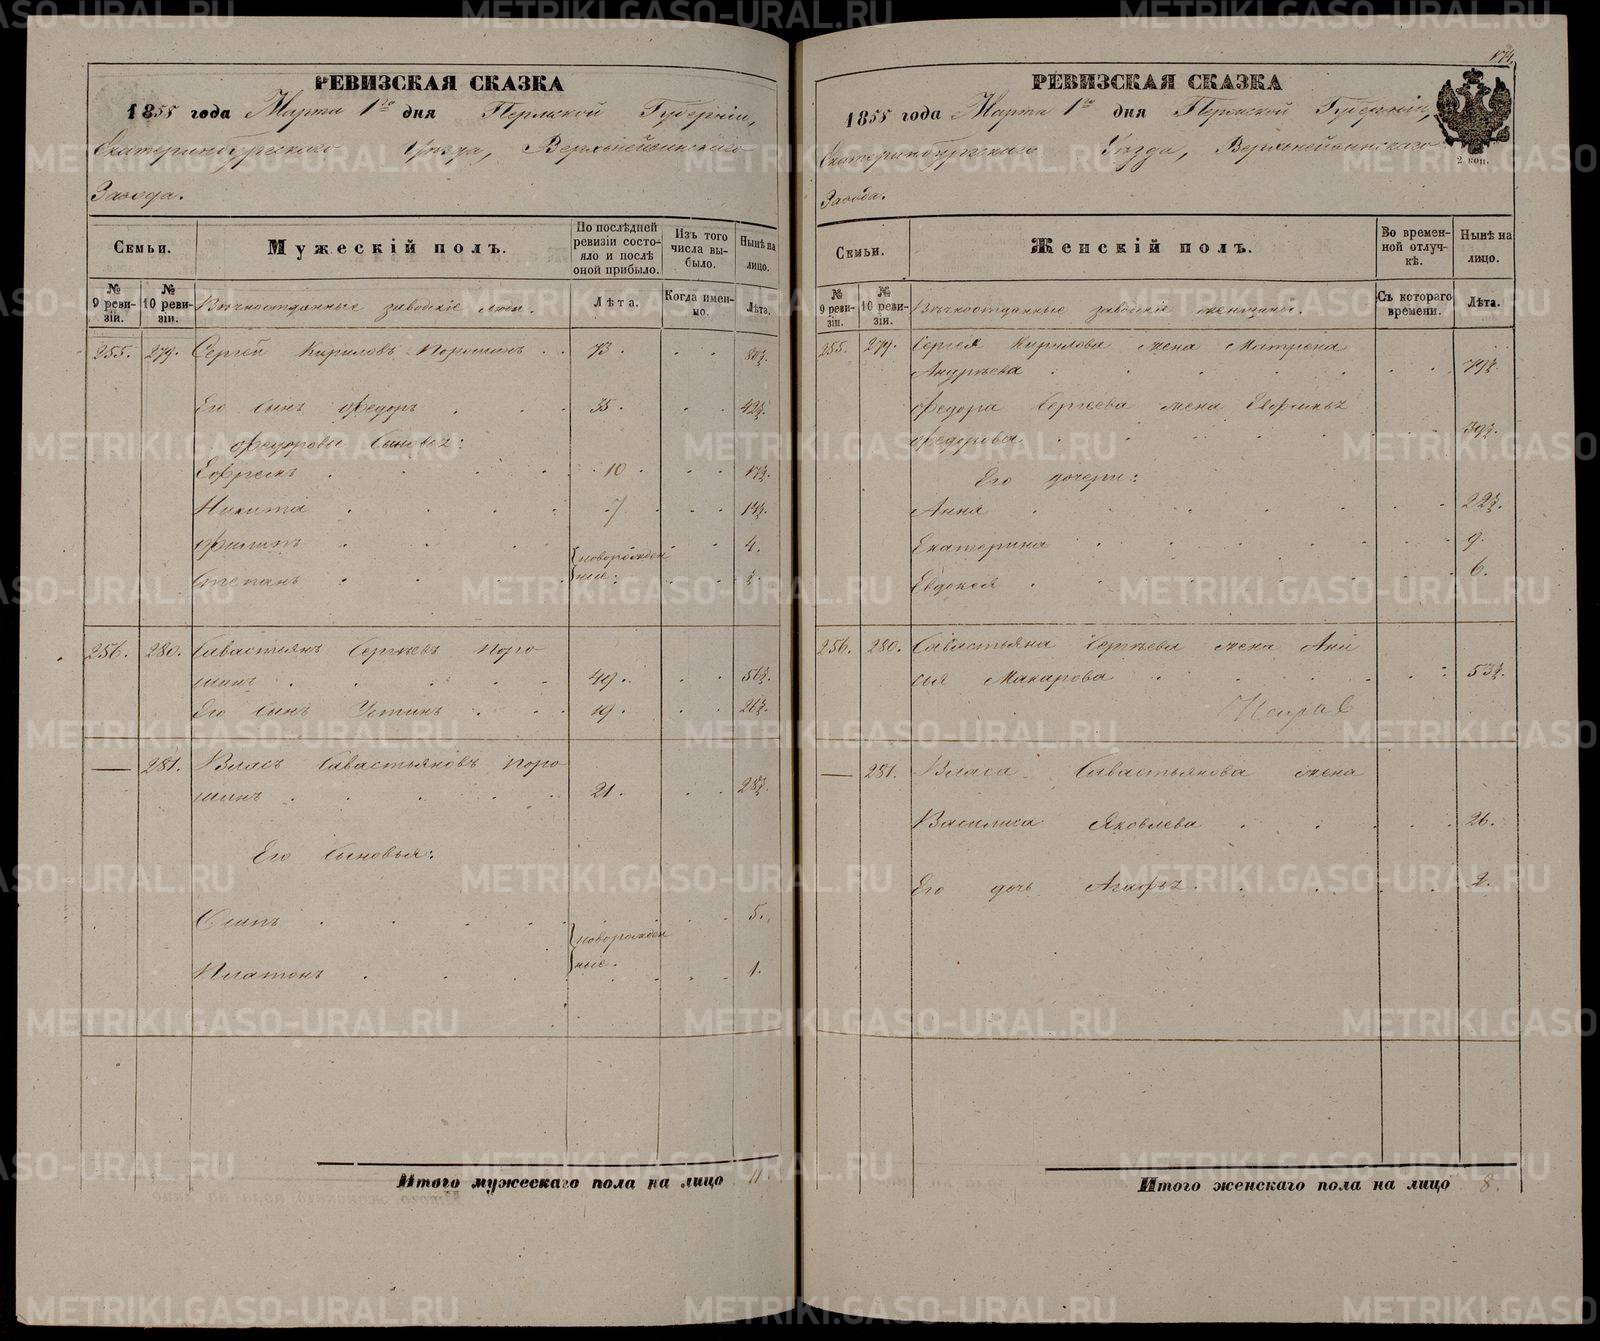 РЕВИЗСКАЯ СКАЗКА
1855 года Марта 1го дня Пермской Губерніи,
Екатеринбургскаго Уѣзда, Верхнейвинскаго
Завода.
Семьи.
Мужескій полъ.
По послѣдней ревизіи состояло и послѣ оной прибыло.
Изъ того числа выбыло.
Нынѣ на лицо.
№ 9 ревизіи.
№ 10 ревизіи.
Вѣчноотданные заводскіе люди.
Лѣта.
Когда именно.
Лѣта.
255. 279. Сергей Кириловъ Порошинъ 73. 80½.
Его сынъ Федоръ 35. 42½.
Федоровы сыновья:
Ефремъ 10 17½.
Никита 7 14½.
Филипъ 4.
{новорожден
Степанъ ные. ½.
256. 280. Савастьянъ Сергѣевъ Поро
шинъ 49. 56½.
Его сынъ Устинъ 19. 26½.
— 281. Власъ Савастьяновъ Поро
шинъ 21. 28½.
Его сыновья:
Осипъ 5.
{новорожден
Платонъ ные. 1.
Итого мужескаго пола на лицо 11.
174
РЕВИЗСКАЯ СКАЗКА
1855 года Марта 1го дня Пермской Губерніи,
Екатеринбургскаго Уѣзда, Верхнейвинскаго
2 коп.
Завода.
Семьи.
Женскій полъ.
Во временной отлучкѣ.
Нынѣ на лицо.
№ 9 ревизіи.
№ 10 ревизіи.
Вѣчноотданные заводскіе женщины.
Съ котораго времени.
Лѣта.
255. 279. Сергея Кирилова жена Матрена
Андреева 79½.
Федора Сергеева жена Евфимья
Федорова 39½.
Его дочери:
Анна 22½.
Екатерина 9.
Евдокея 6.
256. 280. Савастьяна Сергѣева жена Ани
сья Макарова 53½.
— 281. Власа Савастьянова жена
Василиса Яковлева 26.
Его дочь Агафья 2.
Итого женскаго пола на лицо 8.
METRIKI.GASO-URAL.RU